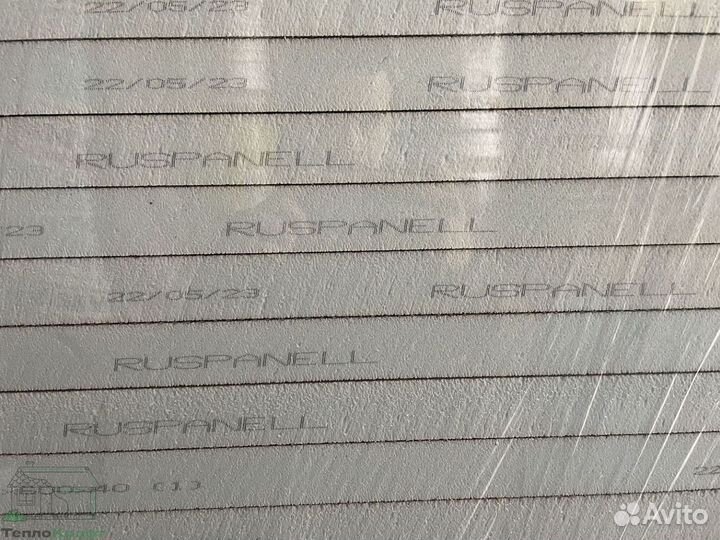 22/05/23 RUSPANELL
22/05/23 RUSPANELL
RUSPANELL
23 RUSPANELL
22/05/23 RUSPANELL
RUSPANELL
RUSPANELL
600×40 (1) 22
ТеплоКровля
Avito